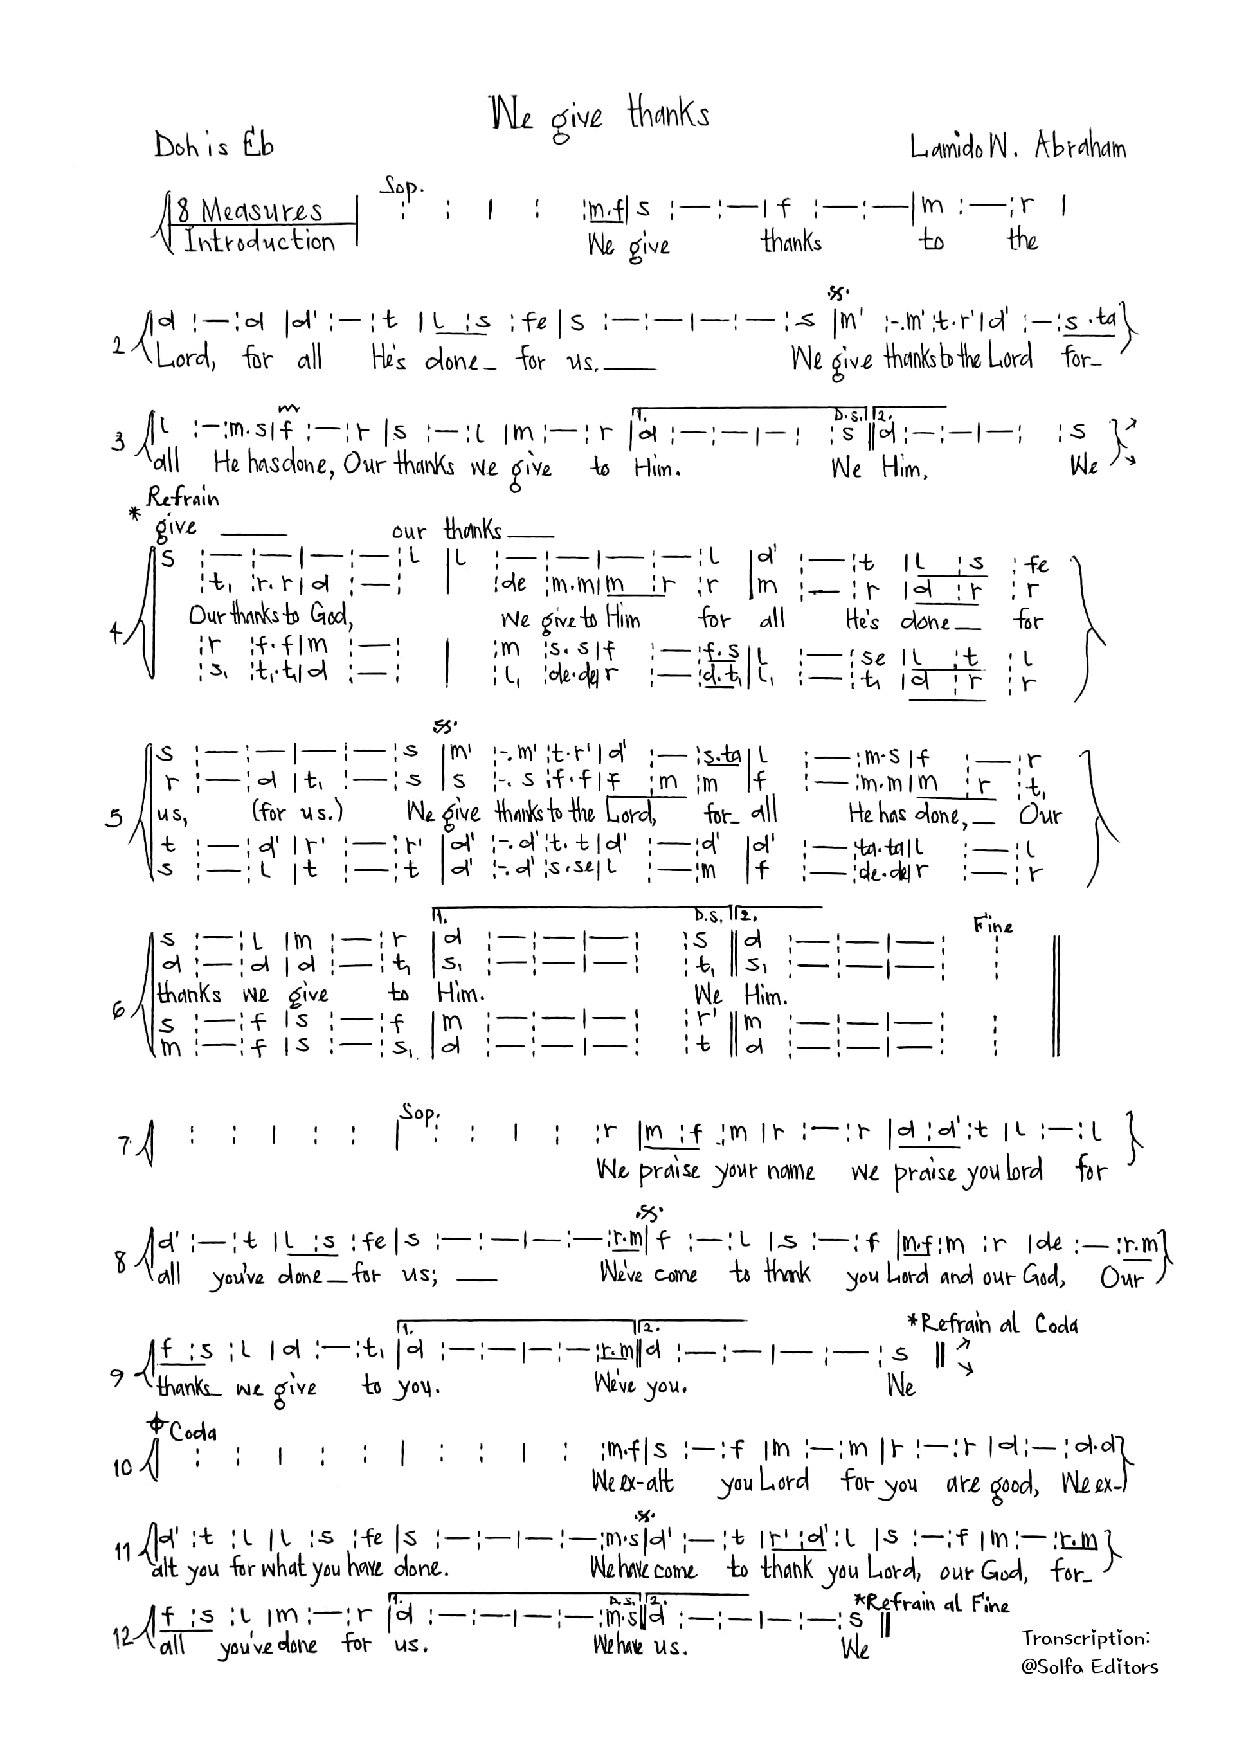 We give thanks
Doh is Eb
Lamido W. Abraham
8 Measures
Introduction
Sop.
: : | : :m.f| s :—:—| f :—:—| m :—:r |
We give thanks to the
2
d :—:d |d' :—:t |l :s :fe | s :—:—|—:—:s |m' :-.m':t.r'|d' :—:s .ta
Lord, for all He's done_ for us.____ We give thanks to the Lord for_
3
l :—:m.s|f :—:r |s :—:l |m :—:r |d :—:—|—: :s ||d :—:—|—: :s
1. D.S. 2.
all He has done, Our thanks we give to Him. We Him, We
* Refrain
give ____ our thanks ____
4
s :—:—|—:—:l | l :—:—|—:—:l |d' :—:t |l :s :fe
:t, :r.r|d :—: :de :m.m|m :r :r |m :—:r |d :r :r
Our thanks to God, We give to Him for all He's done__ for
:r :f.f|m :—: | :m :s.s|f :—:f.s|l :—:se |l :t :l
:s, :t,.t,|d :—: | :l, :de.de|r :—:d.t,|l, :—:t, |d :r :r
5
s :—:—|—:—:s |m' :-.m':t.r'|d' :—:s.ta|l :—:m.s|f :—:r
r :—:d |t, :—:s |s :-.s :f.f|f :m :m |f :—:m.m|m :r :t,
us, (for us.) We give thanks to the Lord, for_ all He has done,_ Our
t :—:d'|r' :—:r' |d' :-.d':t.t|d' :—:d' |d' :—:ta.ta|l :—:l
s :—:l |t :—:t |d' :-.d':s.se|l :—:m |f :—:de.de|r :—:r
6
1. D.S. 2. Fine
s :—:l |m :—:r |d :—:—|—: :s ||d :—:—|—: :
d :—:d |d :—:t, |s, :—:—|—: :t, ||s, :—:—|—: :
thanks we give to Him. We Him.
s :—:f |s :—:f |m :—:—|—: :r' ||m :—:—|—: :
m :—:f |s :—:s, |d :—:—|—: :t ||d :—:—|—: :
7
Sop.
: : | : : | : : | : :r |m :f :m |r :—:r |d :d':t |l :—:l
We praise your name we praise you lord for
8
d' :—:t |l :s :fe | s :—:—|—:—:r.m| f :—:l |s :—:f |m.f:m :r |de :—:r.m
all you've done_ for us; __ We've come to thank you Lord and our God, Our
9
1. 2.
f :s :l |d :—:t, |d :—:—|—:—:r.m||d :—:—|—:—:s ||
*Refrain al Coda
thanks_ we give to you. We've you. We
Coda
10
: : | : : | : : | : :m.f|s :—:f |m :—:m |r :—:r |d:—:d.d
We ex-alt you Lord for you are good, We ex-
11
d' :t :l |l :s :fe |s :—:—|—:—:m.s|d' :—:t |r' :d':l |s :—:f |m:—:r.m
alt you for what you have done. We have come to thank you Lord, our God, for_
12
1. D.S. 2.
f :s :l |m:—:r |d :—:—|—:—:m.s||d :—:—|—:—:s ||
*Refrain al Fine
all you've done for us. We have us. We
Transcription:
@Solfa Editors